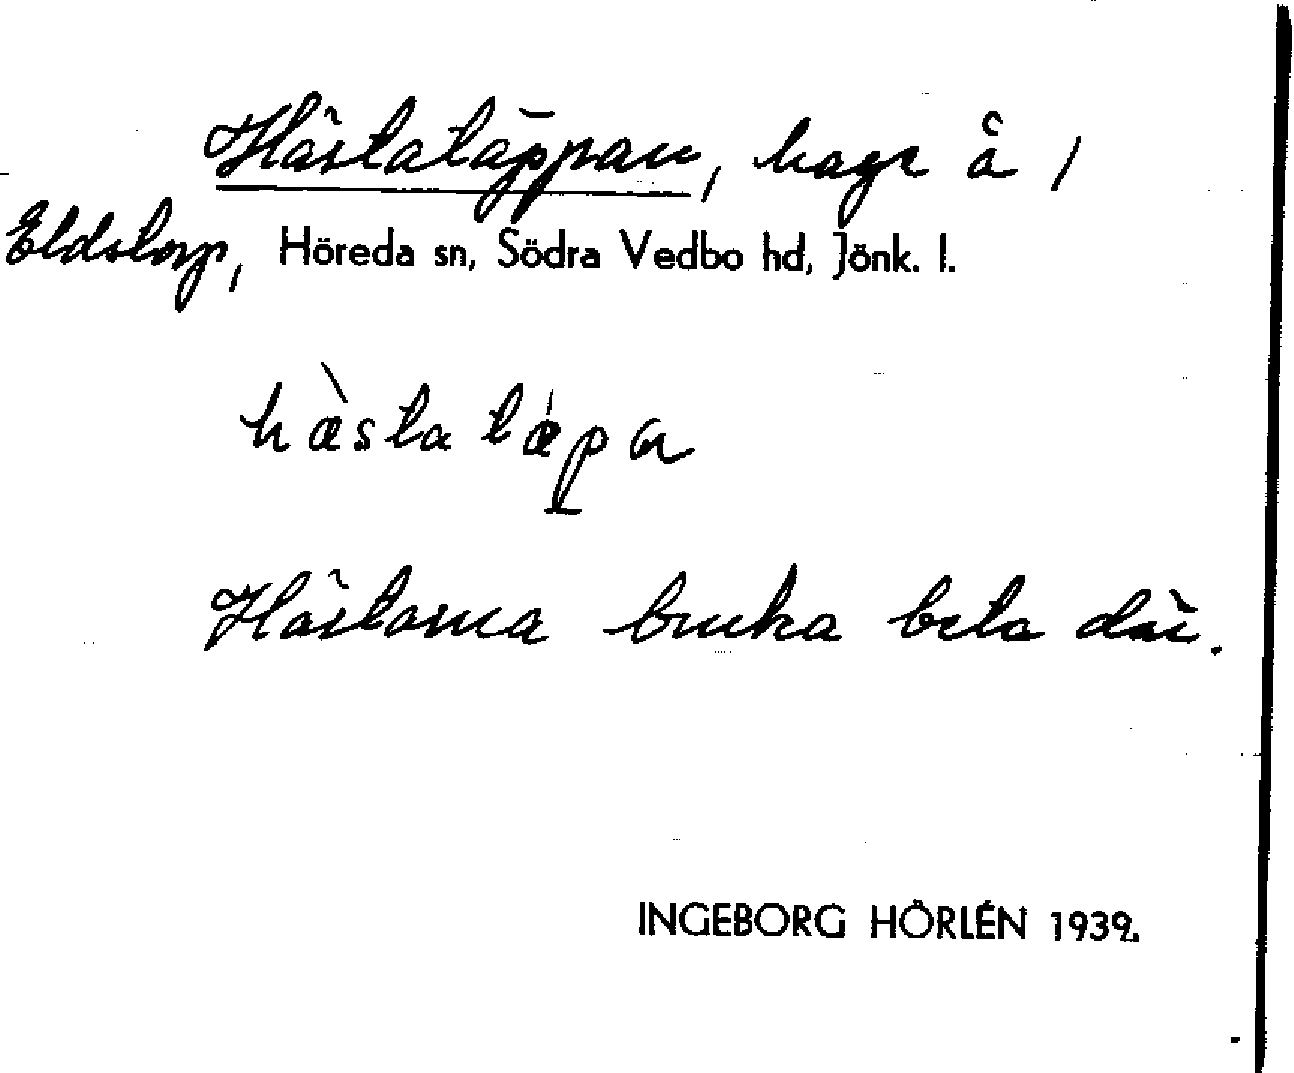 Hästatäppan, hage å 1
Eldstorp, Höreda sn, Södra Vedbo hd, Jönk. l.
hæ̀sta tǽpa
Hästarna bruka beta där.
INGEBORG HÖRLÉN 1939.